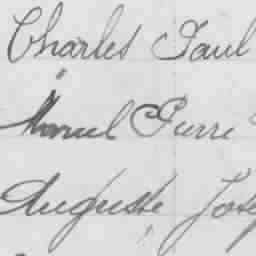 Charles Paul
Marcel Pierre
Auguste, Jose